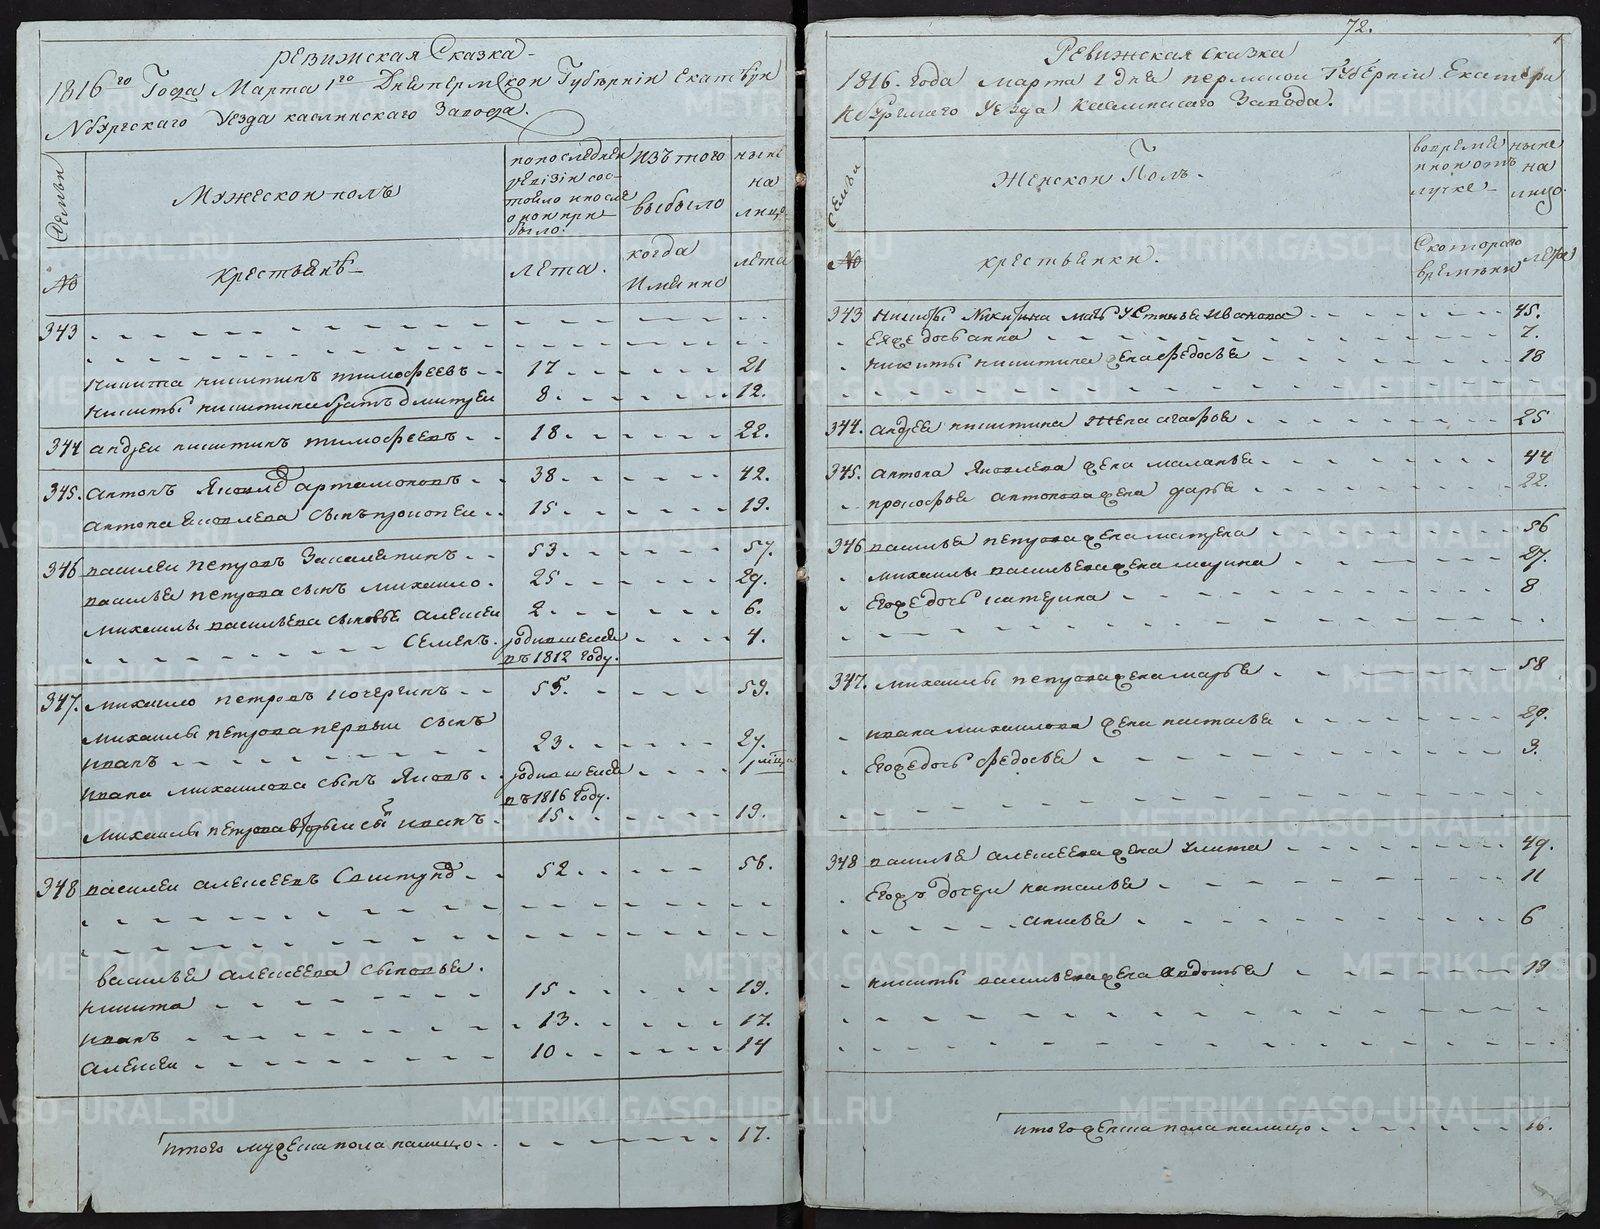 Ревижская Сказка
1816го Года Марта 1го Дне пермской Губернiи Екатерин
бургскаго Уезда каслинскаго Завода.
Семьи
Мужескои полъ
по последнеи
ревiзiи сос-
тояло и после
о нои при-
было.
изъ того
выбыло
ныне
на
лицо
№
крестьянъ
лета.
когда
имянно
лета
343
Никита никитинъ тимофеевъ 17 21
Никиты никитина братъ дмитреи 8 12.
344 андреи никитинъ тимофеевъ 18 22.
345. антонъ Яковлевъ артамоновъ 38 42.
антона Яковлева сынъ прокопеи 15 19.
346 василеи петровъ 53. 57.
василья петрова сынъ михаило 25 29.
михаилы васильева сыновье алексеи 2 6.
Семенъ. родившеися 4.
въ 1812 году.
347. михаило петровъ кочергинъ 55. 59.
михаилы петрова первыи сынъ
иванъ 23 27.
ивана михаилова сынъ Яковъ родившеися 1
въ 1816 году.
михаилы петрова вторыи сынъ иванъ 15 19.
348 василеи алексеевъ 52 56.
василья алексеева сыновья.
никита 15 19.
иванъ 13 17.
алексеи 10 14
итого мужеска пола налицо 17.
72.
Ревижская сказка
1816. года марта 1 дня пермскои Губернiи Екатери
нбурскаго Уезда каслинскаго Завода.
Семьи
Женскои Полъ.
во время
нной отъ
лучке
ныне
на
лицо.
№
крестьянки.
Скотораго
времяни
лета
343 никиты Никитина мать Устинья Ивановна 45.
Ея же дочь анна 7.
никиты никитина жена федосья 18
344. андрея никитина жена агафья 25
345. антона Яковлева жена маланья 44
прокофья антонова жена дарья 22.
346 василья петрова жена матрена 56
михаилы васильева жена марина 27.
Его же дочь катерина 8
347. михаилы петрова жена марья 58
ивана михаилова жена наталья 29.
Его же дочь федосья 3.
348 василья алексеева жена улита 49.
Его жъ дочери наталья 11
анисья 6
никиты васильева жена авдотья 19
итого женска пола налицо 16.